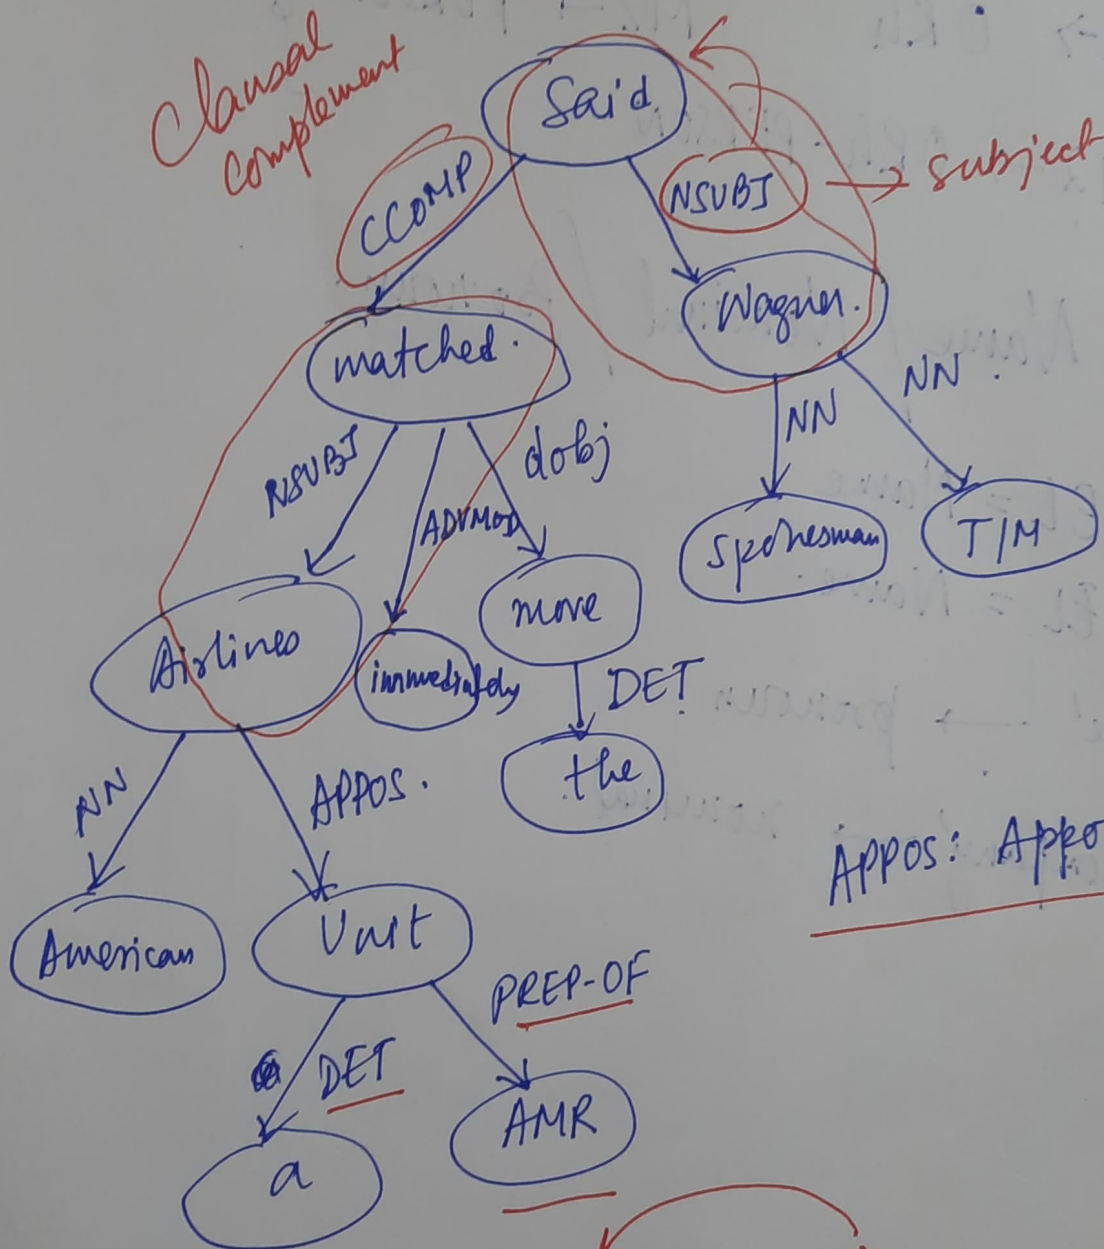 Clausal
complement
Said
CCOMP
NSUBJ
subject
Wagner.
matched.
NN
NN.
NSUBJ
ADVMOD
dobj
Spokesman
TIM
Airlines
immediately
move
DET
the
NN
APPOS.
APPOS: Appo
American
Unit
PREP-OF
DET
AMR
a